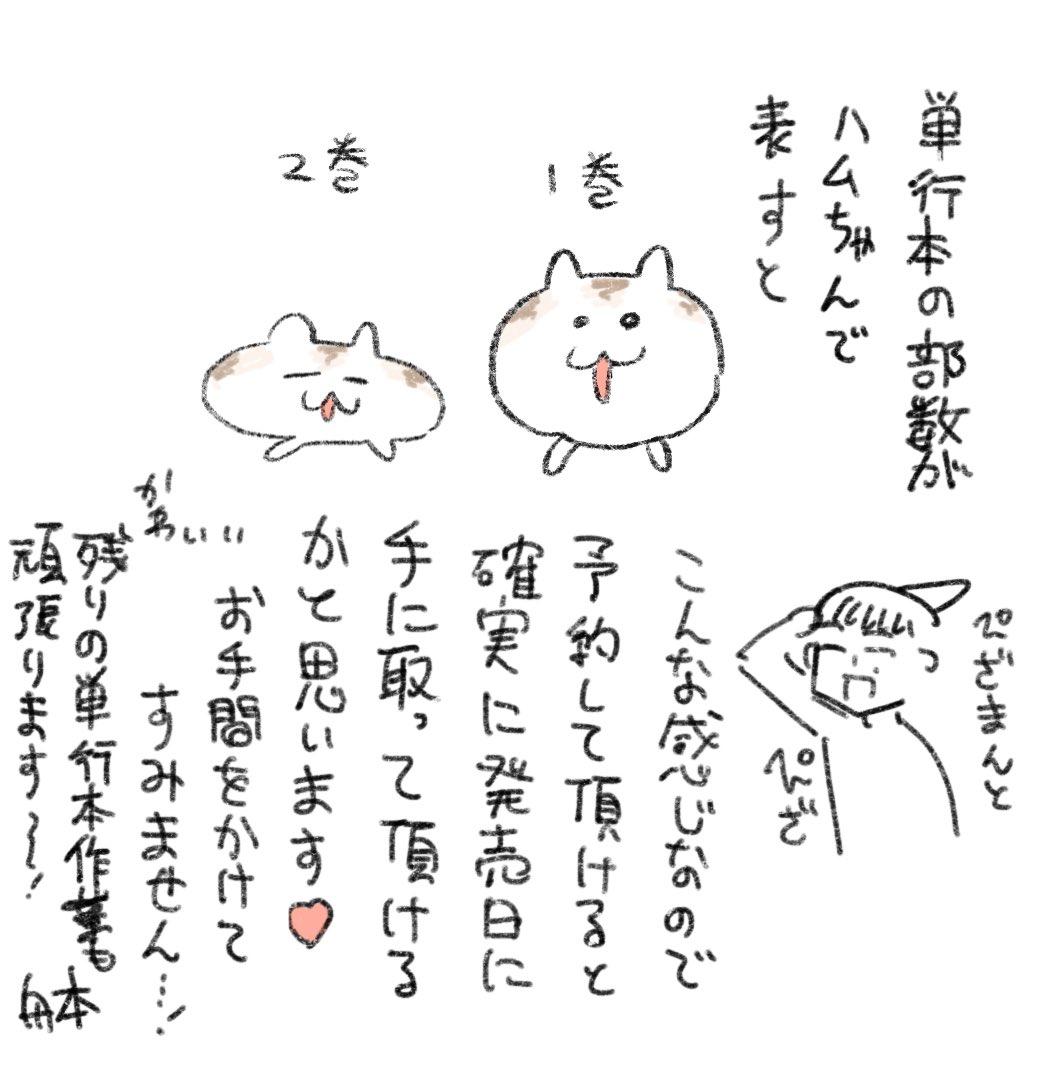 単行本の部数が
ハムちゃんで
表すと
1巻
2巻
ぺざまんと
ぺんざ
こんな感じなので
予約して頂けると
確実に発売日に
手に取って頂ける
かと思います♥
お手間をかけて
すみません…!
かわいい
残りの単行本作業も
頑張ります〜!
舟本